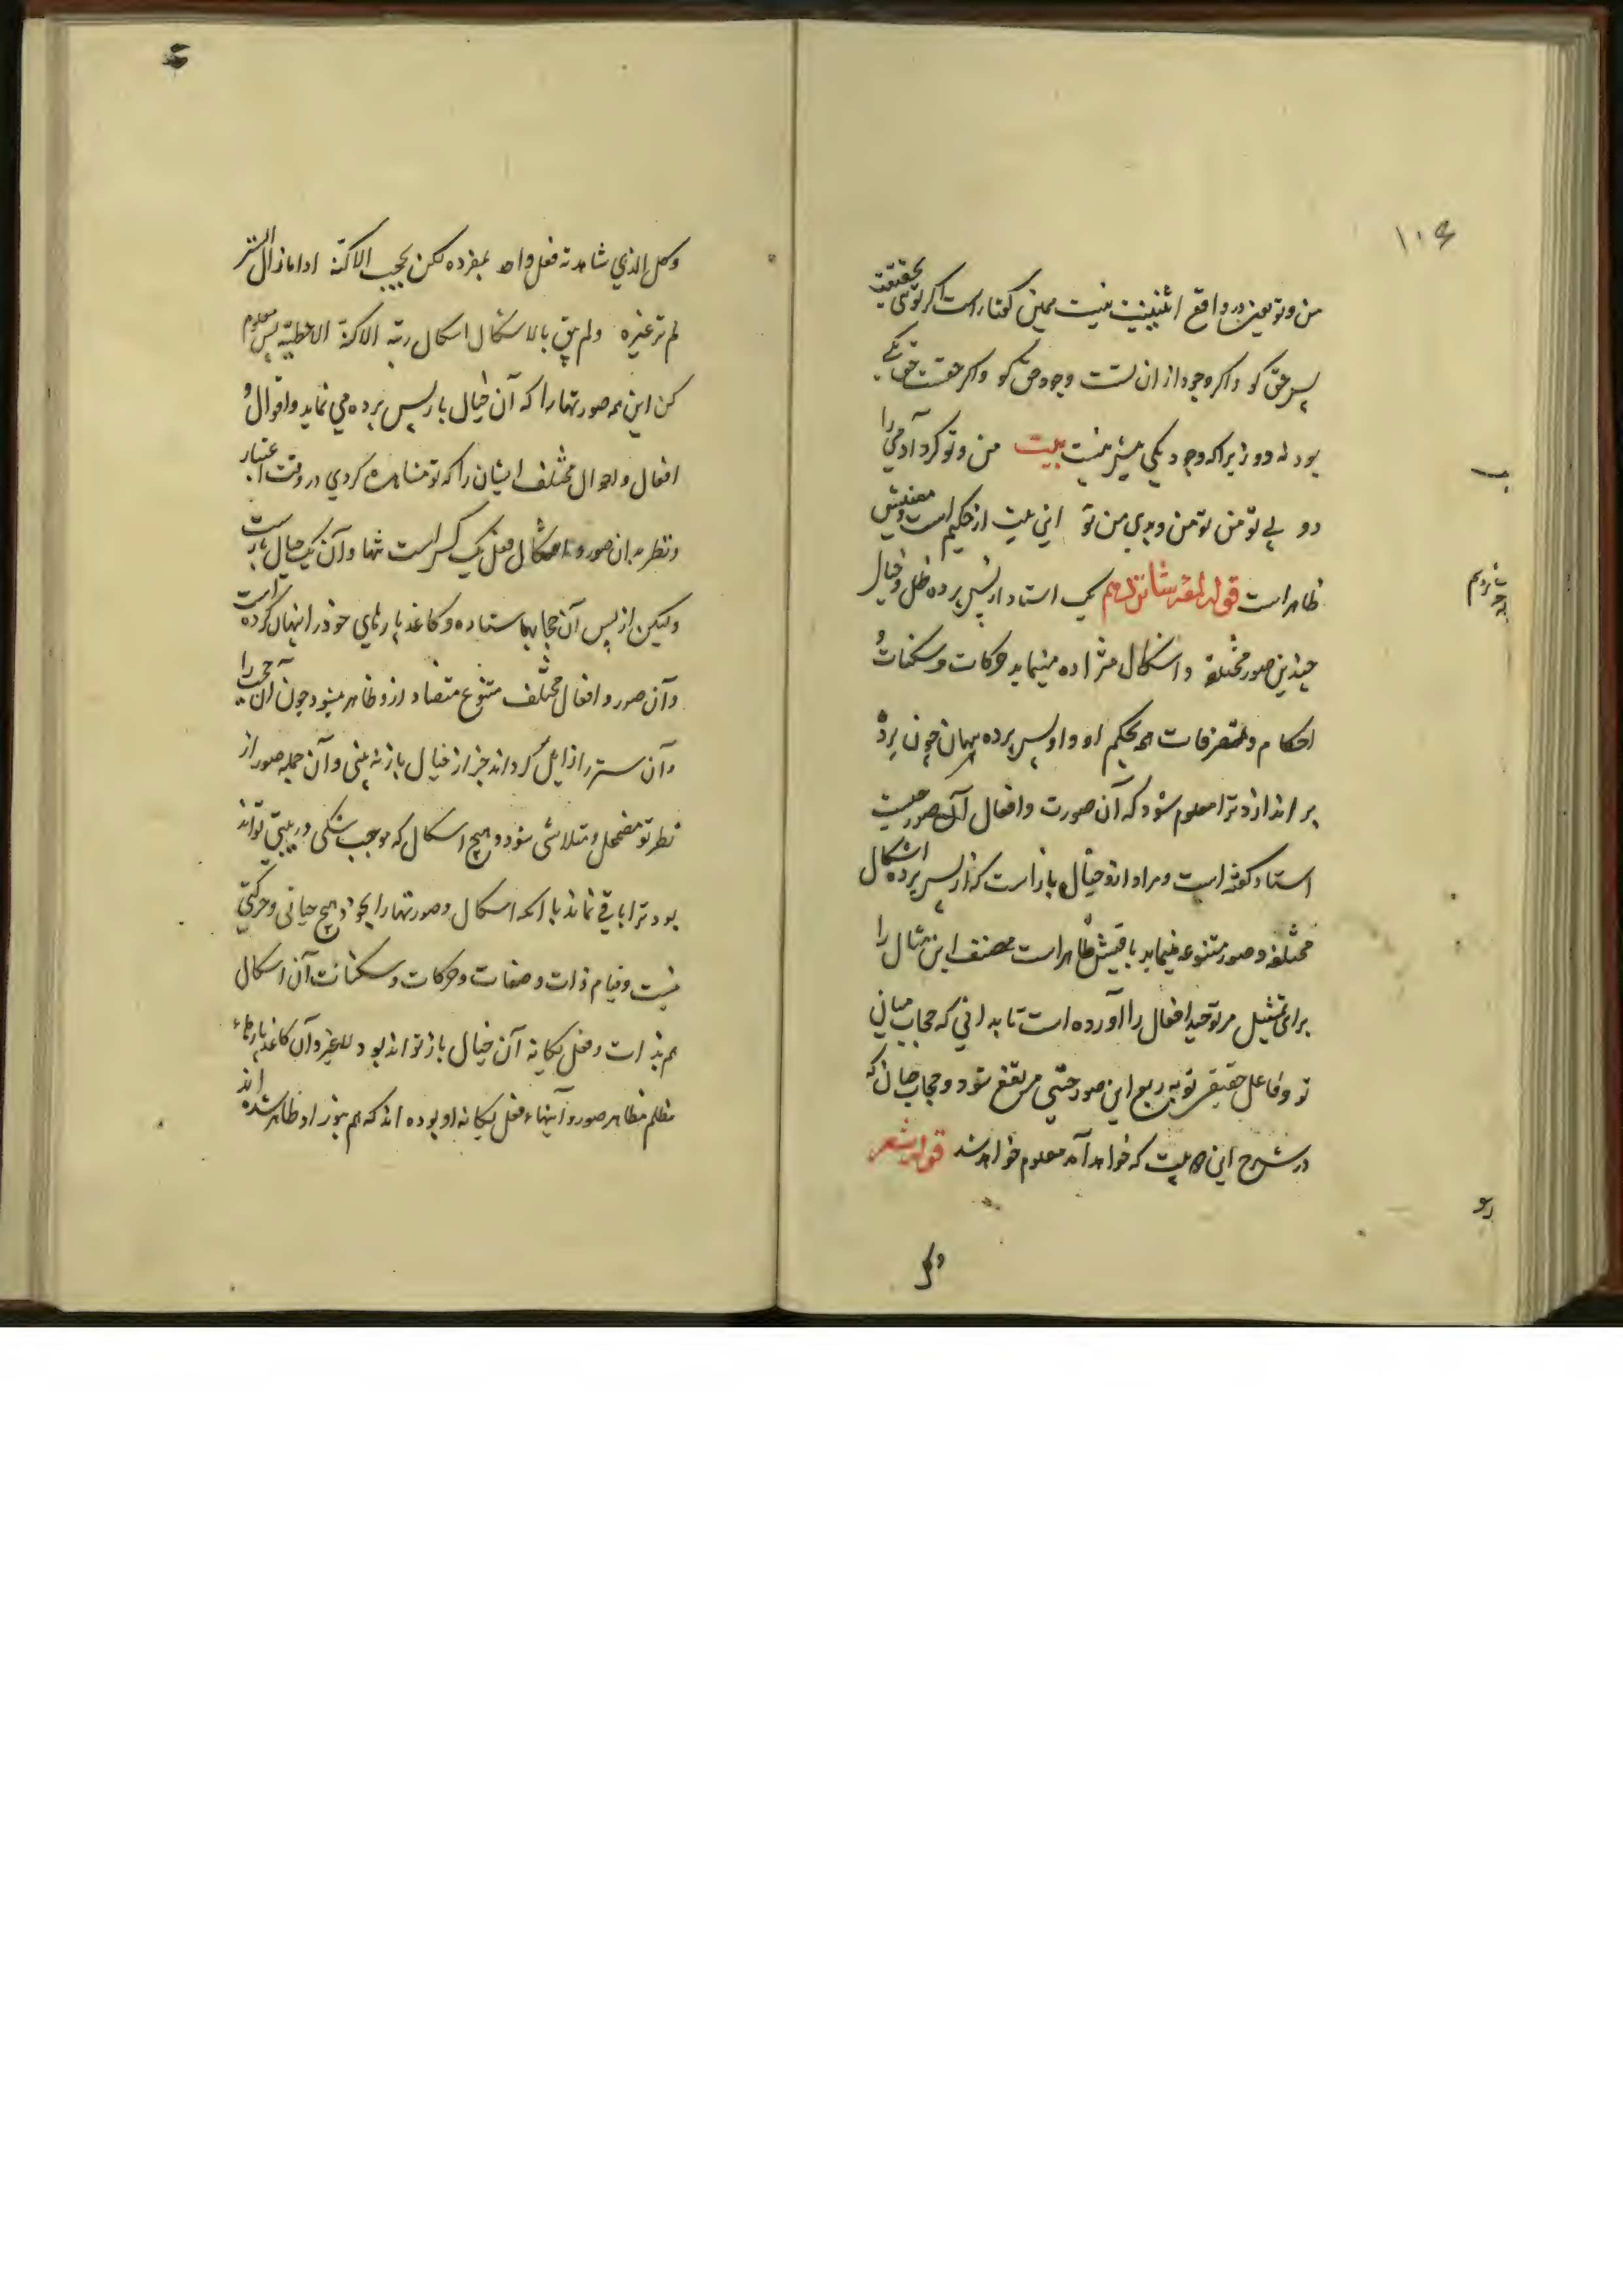 ۱۰۶
من و تو یعنی در واقع اثنینیت نیست همین گفتار است اگر توئی بحقیقت
پس حق کو و اگر وجود از ان تست وجود حق کو و اگر حقست حق یکی
بود نه دو زیرا که وجود یکی بیش نیست بیت من و تو کرد آدمی را
دو بی تو من تو من و بدی من تو این بیت از حکیم است و معنیش
ظاهر است قوله لمعه شانزدهم یک استاد از پس پرده ظل و خیال
چندین صور مختلفه و اشکال متزاده مینماید حرکات و سکنات و
احکام و تصرفات همه بحکم او و او پس پرده پنهان چون پرده
بر اندازد ترا معلوم شود که آن صورت و افعال آن صور چیست
استاد گفته است و مراد ازو خیال باز است که از پس پرده اشکال
مختلفه و صور متنوعه مینماید باقیش ظاهر است مصنف این مثال را
برای تمثیل مر توحید افعال را آورده است تا بدانی که حجاب میانی
تو و فاعل حقیقی تو به ربع این صور حتی مرتفع شود و حجاب چنان که
در شرح این بیت که خواهد آمد معلوم خواهد شد قوله شعر
و کل
شانزدهم
وکل الذي شاهدته فعل واحد بمفرده لکن بحجب الاکنة اذا ما زال الستر
لم تر غیره ولم یبق بالاشکال اشکال ریبة الاکنة الاغطیة پس معلوم
کن این همه صورتها را که آن خیال باز پس پرده می نماید و اقوال و
افعال و احوال مختلف ایشان را که تو مشاهده کردي در وقت اعتبار
و نظر بدان صور و اشکال فعل یک کس است تنها و آن یک خیال باز است
ولیکن از پس آن حجابها ستاده و کاغذ پارهاي خود را پنهان کرده است
و آن صور و افعال مختلف متنوع متضاد ازو ظاهر میشود چون آن حجب را
و آن ستر را زایل گرداند جز از خیال باز نه بینی و آن جمله صور از
نظر تو مضمحل و متلاشی شود و هیچ اشکال که موجب شکی و ریبتی تواند
بود ترا باقی نماند با آنکه اشکال و صورتها را بخود هیچ حیاتی و حرکتی
نیست و قیام ذات و صفات و حرکات و سکنات آن اشکال
هم بذات و فعل یگانه آن خیال باز تواند بود لا لغیره و آن کاغذ پارهاء
مظلم مظاهر صور و آینهاء فعل یگانه او بوده اند که هم بنور او ظاهر شده اند